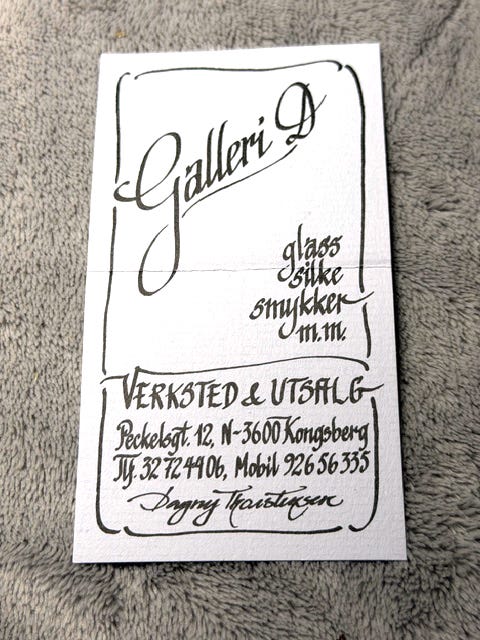 Galleri D
glass
silke
smykker
m.m.
VERKSTED & UTSALG
Peckelsgt. 12, N-3600 Kongsberg
Tlf. 32 72 44 06, Mobil 926 56 335
Dagny